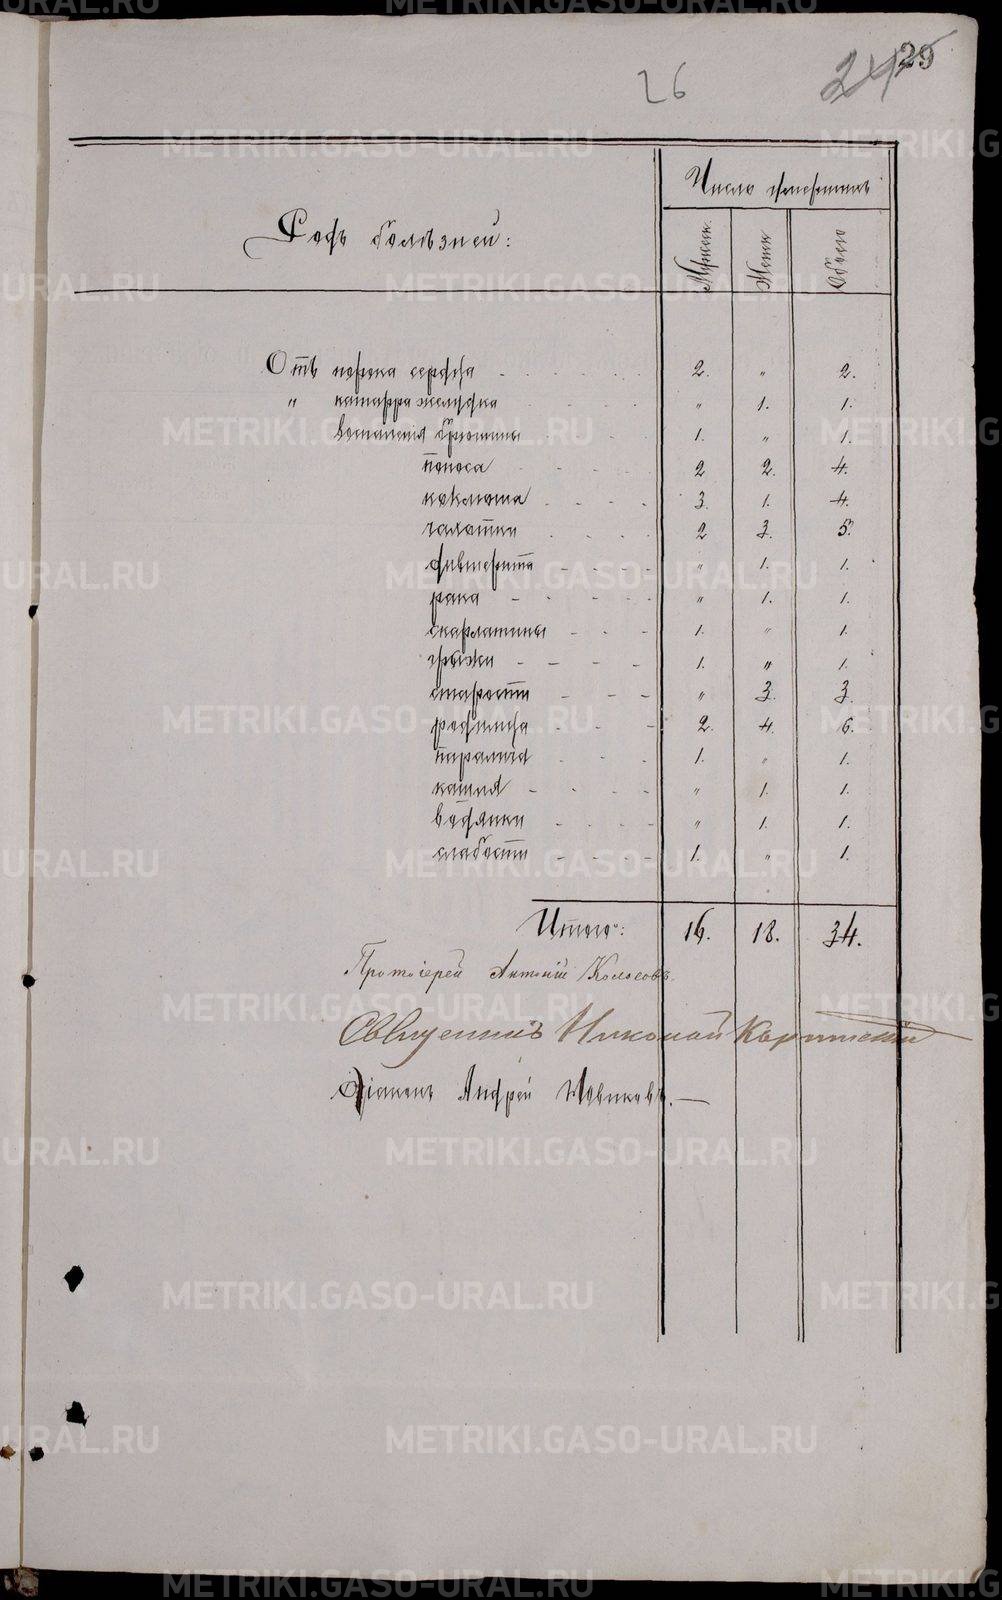 26 24 29
Родъ болѣзней:
Число умершихъ
Мужск. Женск Обоего
Отъ порока сердца - - - - - 2. " 2.
" катарра желудка - - - - " 1. 1.
воспаленія брюшины - - - 1. " 1.
поноса - - - - 2 2. 4.
коклюша - - - - 3. 1. 4.
чахотки - - - - 2 3. 5.
дифтерита - - - - " 1. 1.
рака - - - - - " 1. 1.
скарлатины - - - 1. " 1.
грыжи - - - - 1. " 1.
старости - - - " 3. 3.
родимца - - - 2. 4. 6.
паралича - - - 1. " 1.
кашля - - - - " 1. 1.
водянки - - - - " 1. 1.
слабости - - - - 1. " 1.
Итого: 16. 18. 34.
Протоіерей Антоній Колосовъ.
Священникъ Николай
Діаконъ Андрей Новиковъ. —
METRIKI.GASO-URAL.RU